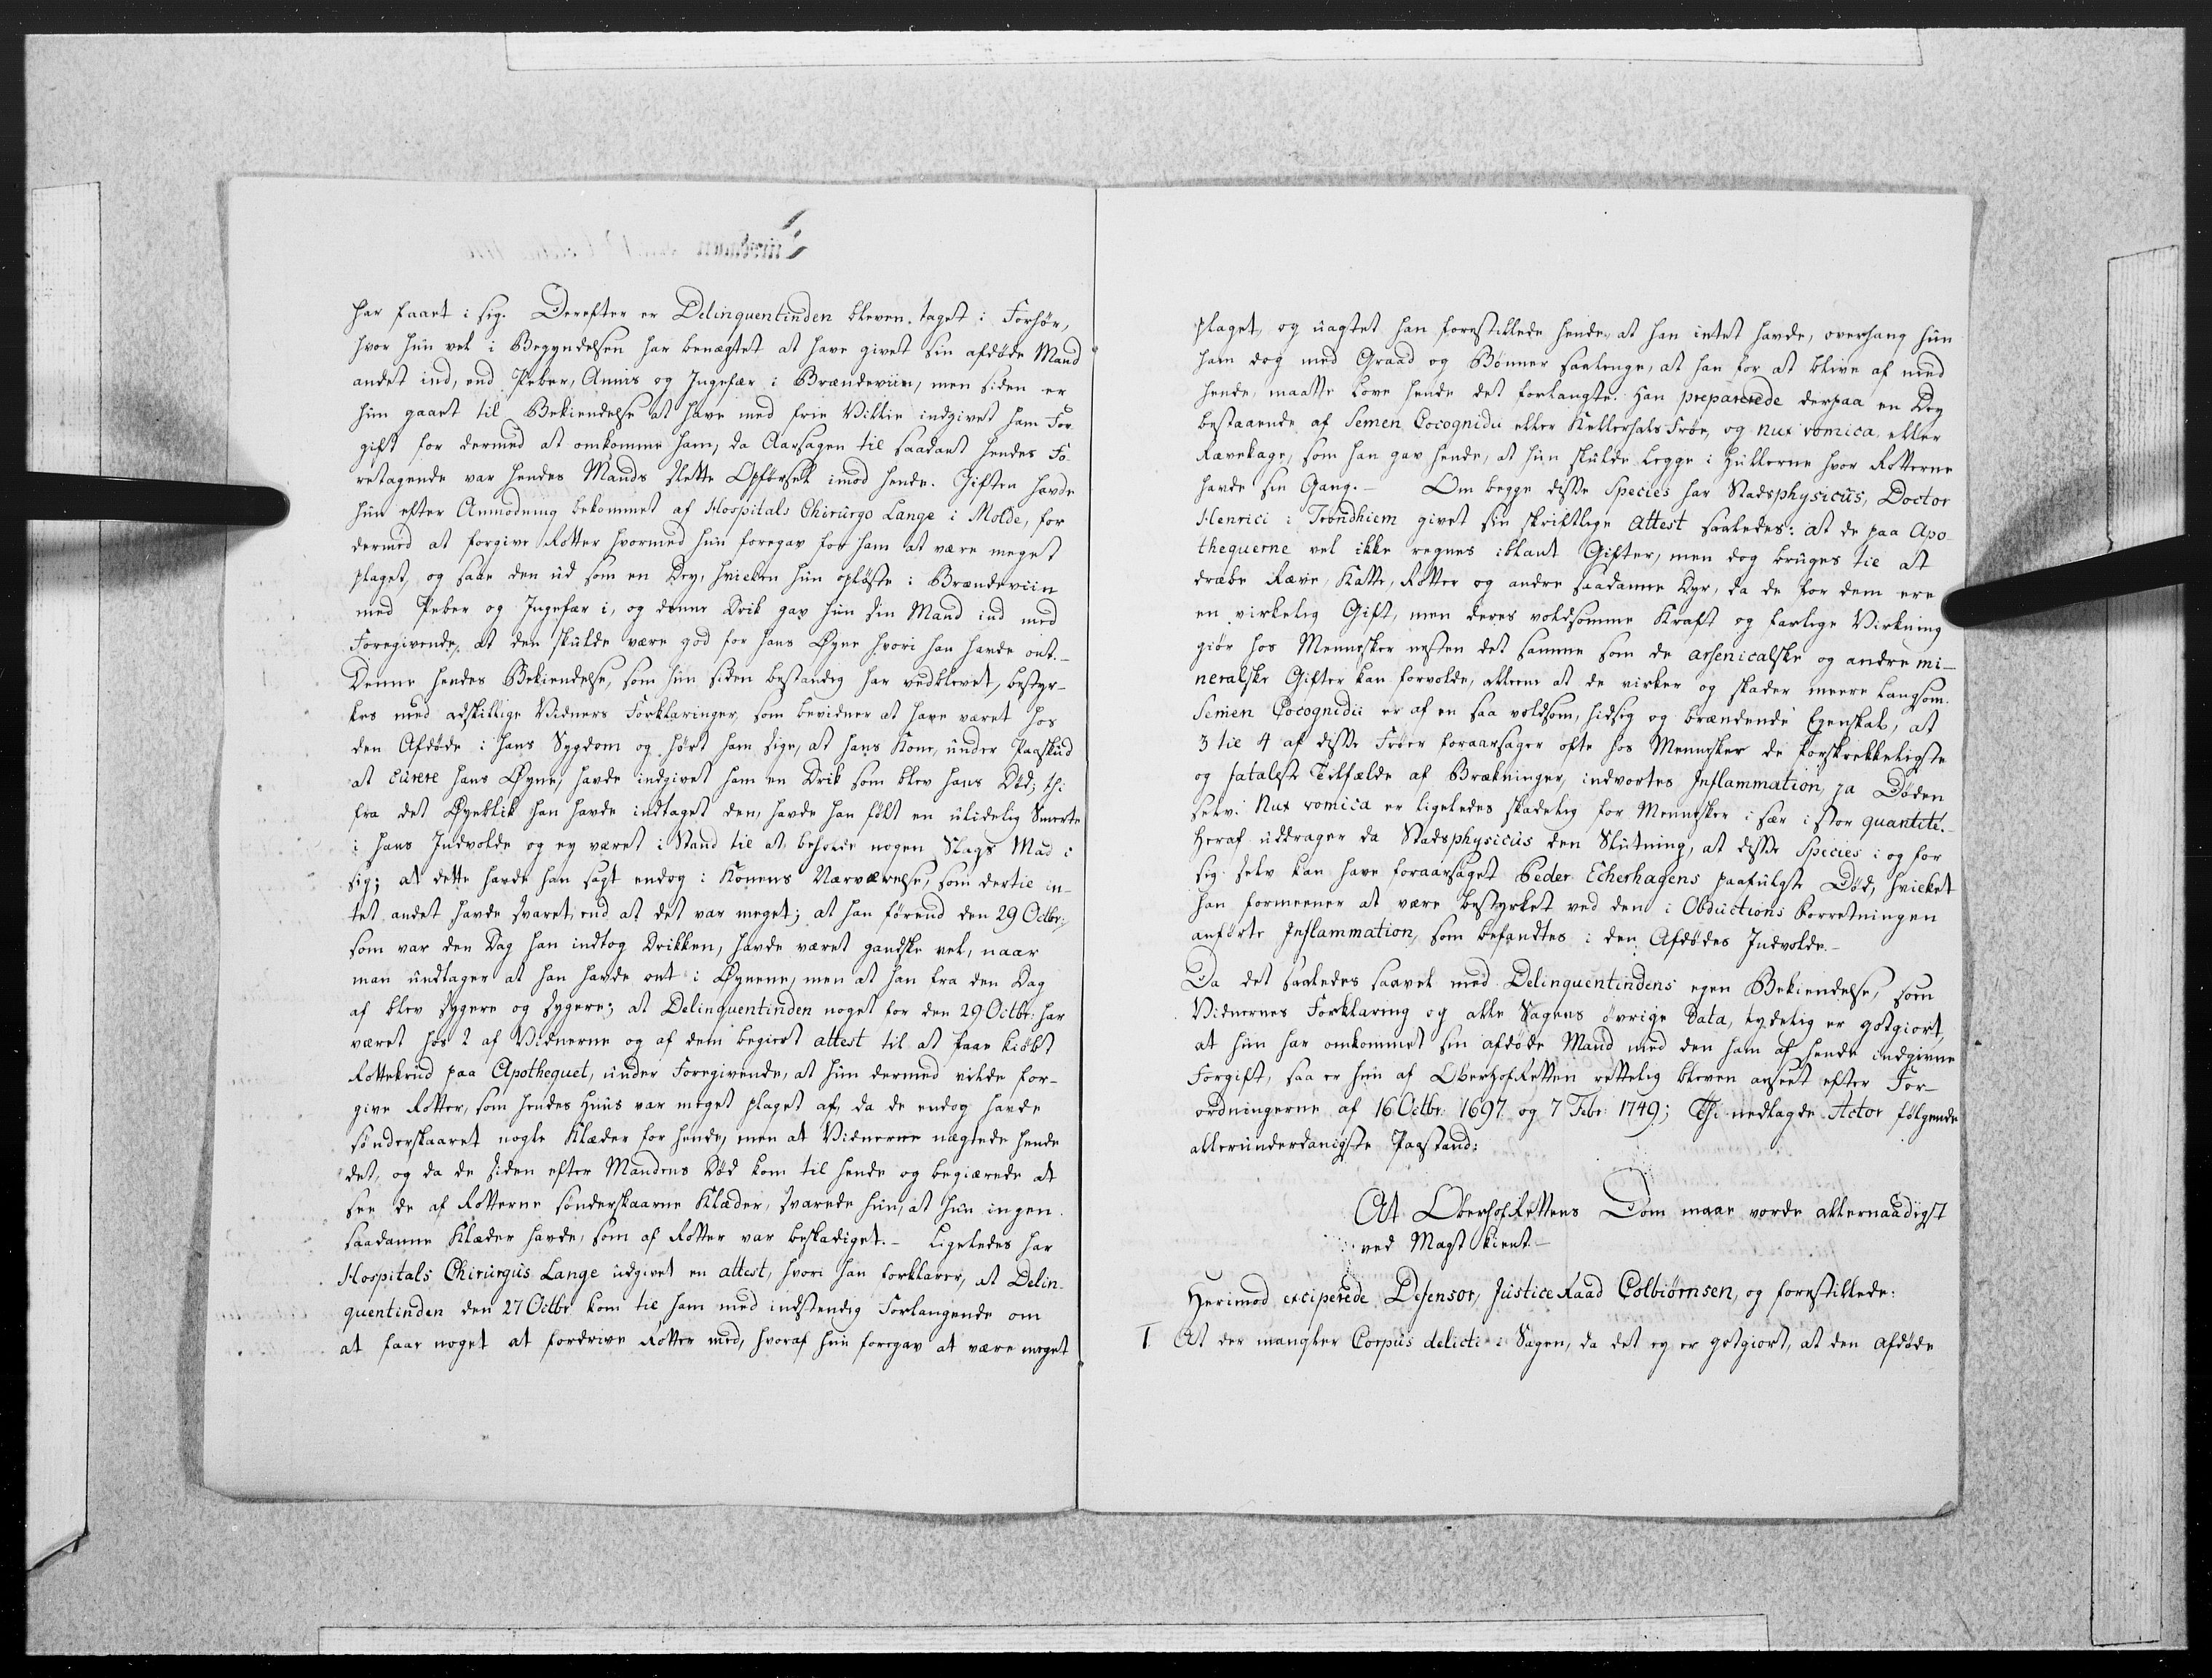 har faaet i sig. Derefter er Delinquentinden bleven taget i Forhør,
hvor hun vel i Begyndelsen har benægtet at have givet sin afdøde Mand
andet ind, end Peber, Annis og Ingefær i Brændeviin, men siden er
hun gaaet til Bekiendelse at have med frie Villie indgivet ham For-
gift for dermed at omkomme ham, da Aarsagen til saadant hendes Fo-
retagende var hendes Mands slette Opførsel imod hende. Giften havde
hun efter Anmodning bekommet af Hospitals Chirurgo Lange i Molde, for
dermed at forgive Rotter hvormed hun foregav for ham at være meget
plaget, og saae den ud som en Dey, hvilken hun opløste i Brændeviin
med Peber og Ingefær i, og denne Drik gav hun sin Mand ind med
Foregivende, at den skulde være god for hans Øyne hvori han havde ont.-
Denne hendes Bekiendelse, som hun siden bestandig har vedblevet, bestyr-
kes med adskillige Vidners Forklaringer, som bevidner at have været hos
den Afdøde i hans Sygdom og hørt ham sige, at hans Kone, under Paaskud
at curere hans Øyne, havde indgivet ham en Drik som blev hans Død; thi
fra det Øyeblik han havde indtaget den, havde han følt en ulidelig Smerte
i hans Indvolde og ey været i Stand til at beholde nogen Slags Mad i
sig; at dette havde han sagt endog i Konens Nærværelse, som dertil in-
tet andet havde svaret, end at det var meget; at han førend den 29 Octbr:
som var den Dag han indtog Drikken, havde været gandske vel, naar
man undtager at han havde ont i Øynene, men at han fra den Dag
af blev sygere og sygere; at Delinquentinden noget for den 29 Octbr: har
været hos 2 af Vidnerne og af dem begiert attest til at faae kiøbt
Rottekrud paa Apothequet, under Foregivende, at hun dermed vilde for-
give Rotter, som hendes Huus var meget plaget af, da de endog havde
sønderskaaret nogle Klæder for hende, men at Vidnerne nægtede hende
det, og da de siden efter Mandens Død kom til hende og begiærede at
see de af Rotterne sønderskaarne Klæder, svarede hun, at hun ingen
saadanne Klæder havde, som af Rotter var beskadiget.- Ligeledes har
Hospitals Chirurgus Lange udgivet en attest, hvori han forklarer, at Delin-
quentinden den 27 Octbr kom til ham med indstendig Forlangende om
at faae noget at fordrive Rotter med, hvoraf hun foregav at være meget
plaget, og uagtet han forestillede hende, at han intet havde, overhang hun
ham dog med Graad og Bønner saalenge, at han for at blive af med
hende, maatte love hende det forlangte. Han præparerede derpaa en Dey
bestaaende af Semen Cocognidii eller Kellerhals Frøe, og nux vomica eller
Rævekage, som han gav hende, at hun skulde legge i Hullerne hvor Rotterne
havde sin Gang.- Om begge disse Species har Stadsphysicus, Doctor
Henrici i Trondhiem givet sin skriftlige attest saaledes: at de paa Apo-
thequerne vel ikke regnes iblant Gifter, men dog bruges til at
dræbe Ræve, Katte, Rotter og andre saadanne Dyr, da de for dem ere
en virkelig Gift, men deres voldsomme Kraft og farlige Virkning
giør hos Mennesker nesten det samme som de arsenicalske og andre mi-
neralske Gifter kan forvolde, allene at de virker og skader meere langsom.
Semen Cocognidii er af en saa voldsom, hidsig og brændende Egenskab, at
3 til 4 af disse Frøer foraarsager ofte hos Mennesker de forskrekkeligste
og fataleste Tilfælde af Brækninger, indvortes Inflammation, ja Døden
selv. Nux vomica er ligeledes skadelig for Mennesker i sær i stor quantité.-
Heraf uddrager da Stadsphysicus den Slutning, at disse Species i og for
sig selv kan have foraarsaget Peder Echerhagens paafulgte Død, hvilket
han formeener at være bestyrket ved den i Obductions Forretningen
anførte Inflammation, som befandtes i den Afdødes Indvolde.-
Da det saaledes saavel med Delinquentindens egen Bekiendelse, som
Vidnernes Forklaring og alle Sagens øvrige Data, tydelig er gotgiort,
at hun har omkommet sin afdøde Mand med den ham af hende indgivne
Forgift, saa er hun af OberhofRetten rettelig bleven anseet efter For-
ordningerne af 16 Octbr: 1697 og 7 Febr: 1749; Thi nedlagde Actor følgende
allerunderdanigste Paastand:
At OberhofRettens Dom maae vorde allernaadigst
ved Magt kient.-
Herimod exciperede Defensor, Justice Raad Colbiørnsen, og forestillede:
1. At der mangler Corpus delicti i Sagen, da det ey er gotgiort, at den afdøde